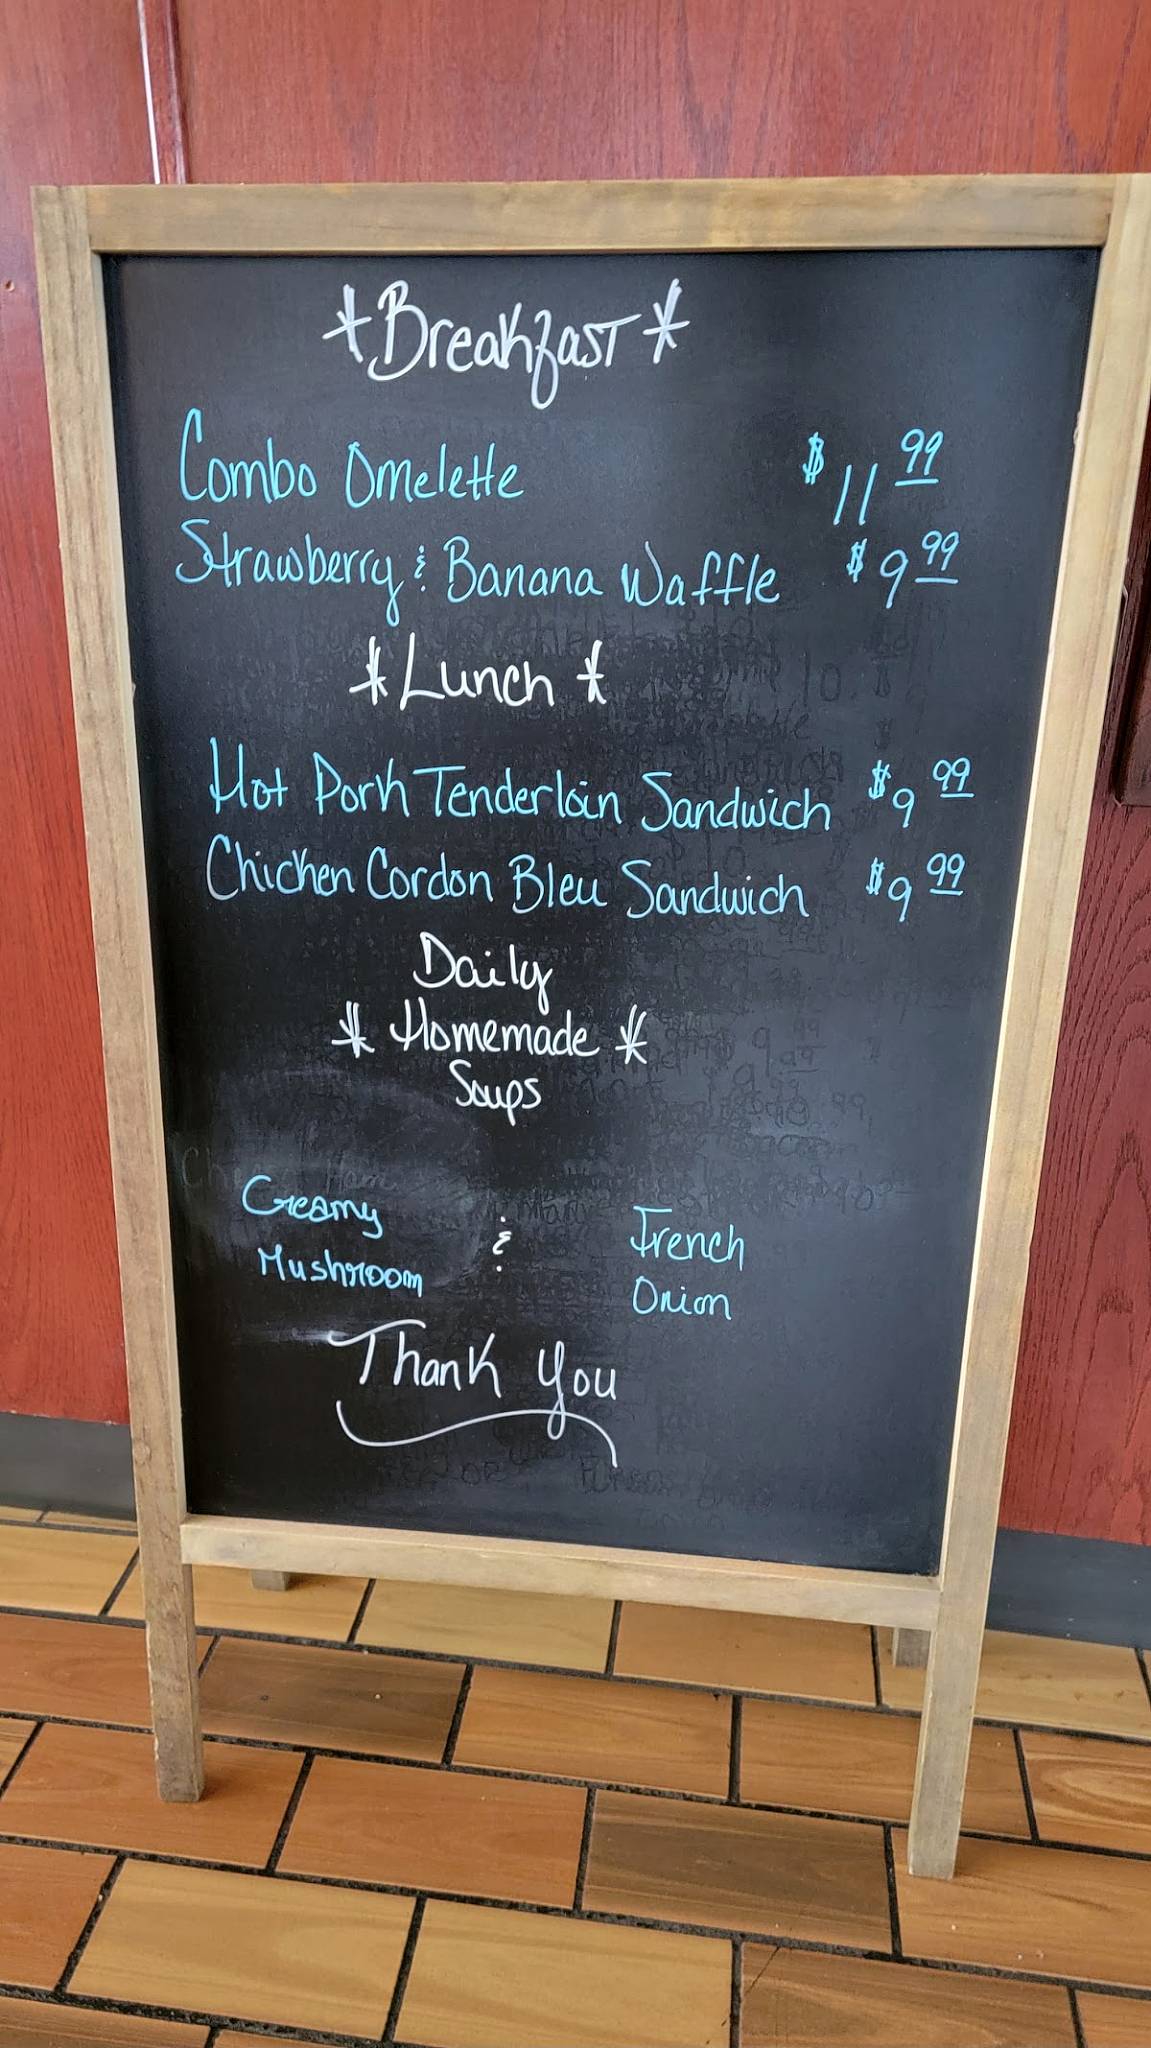 *Breakfast*
Combo Omelette $11.99
Strawberry & Banana Waffle $9.99
*Lunch*
Hot Pork Tenderloin Sandwich $9.99
Chicken Cordon Bleu Sandwich $9.99
Daily
* Homemade *
Soups
Creamy & French
Mushroom Onion
Thank You